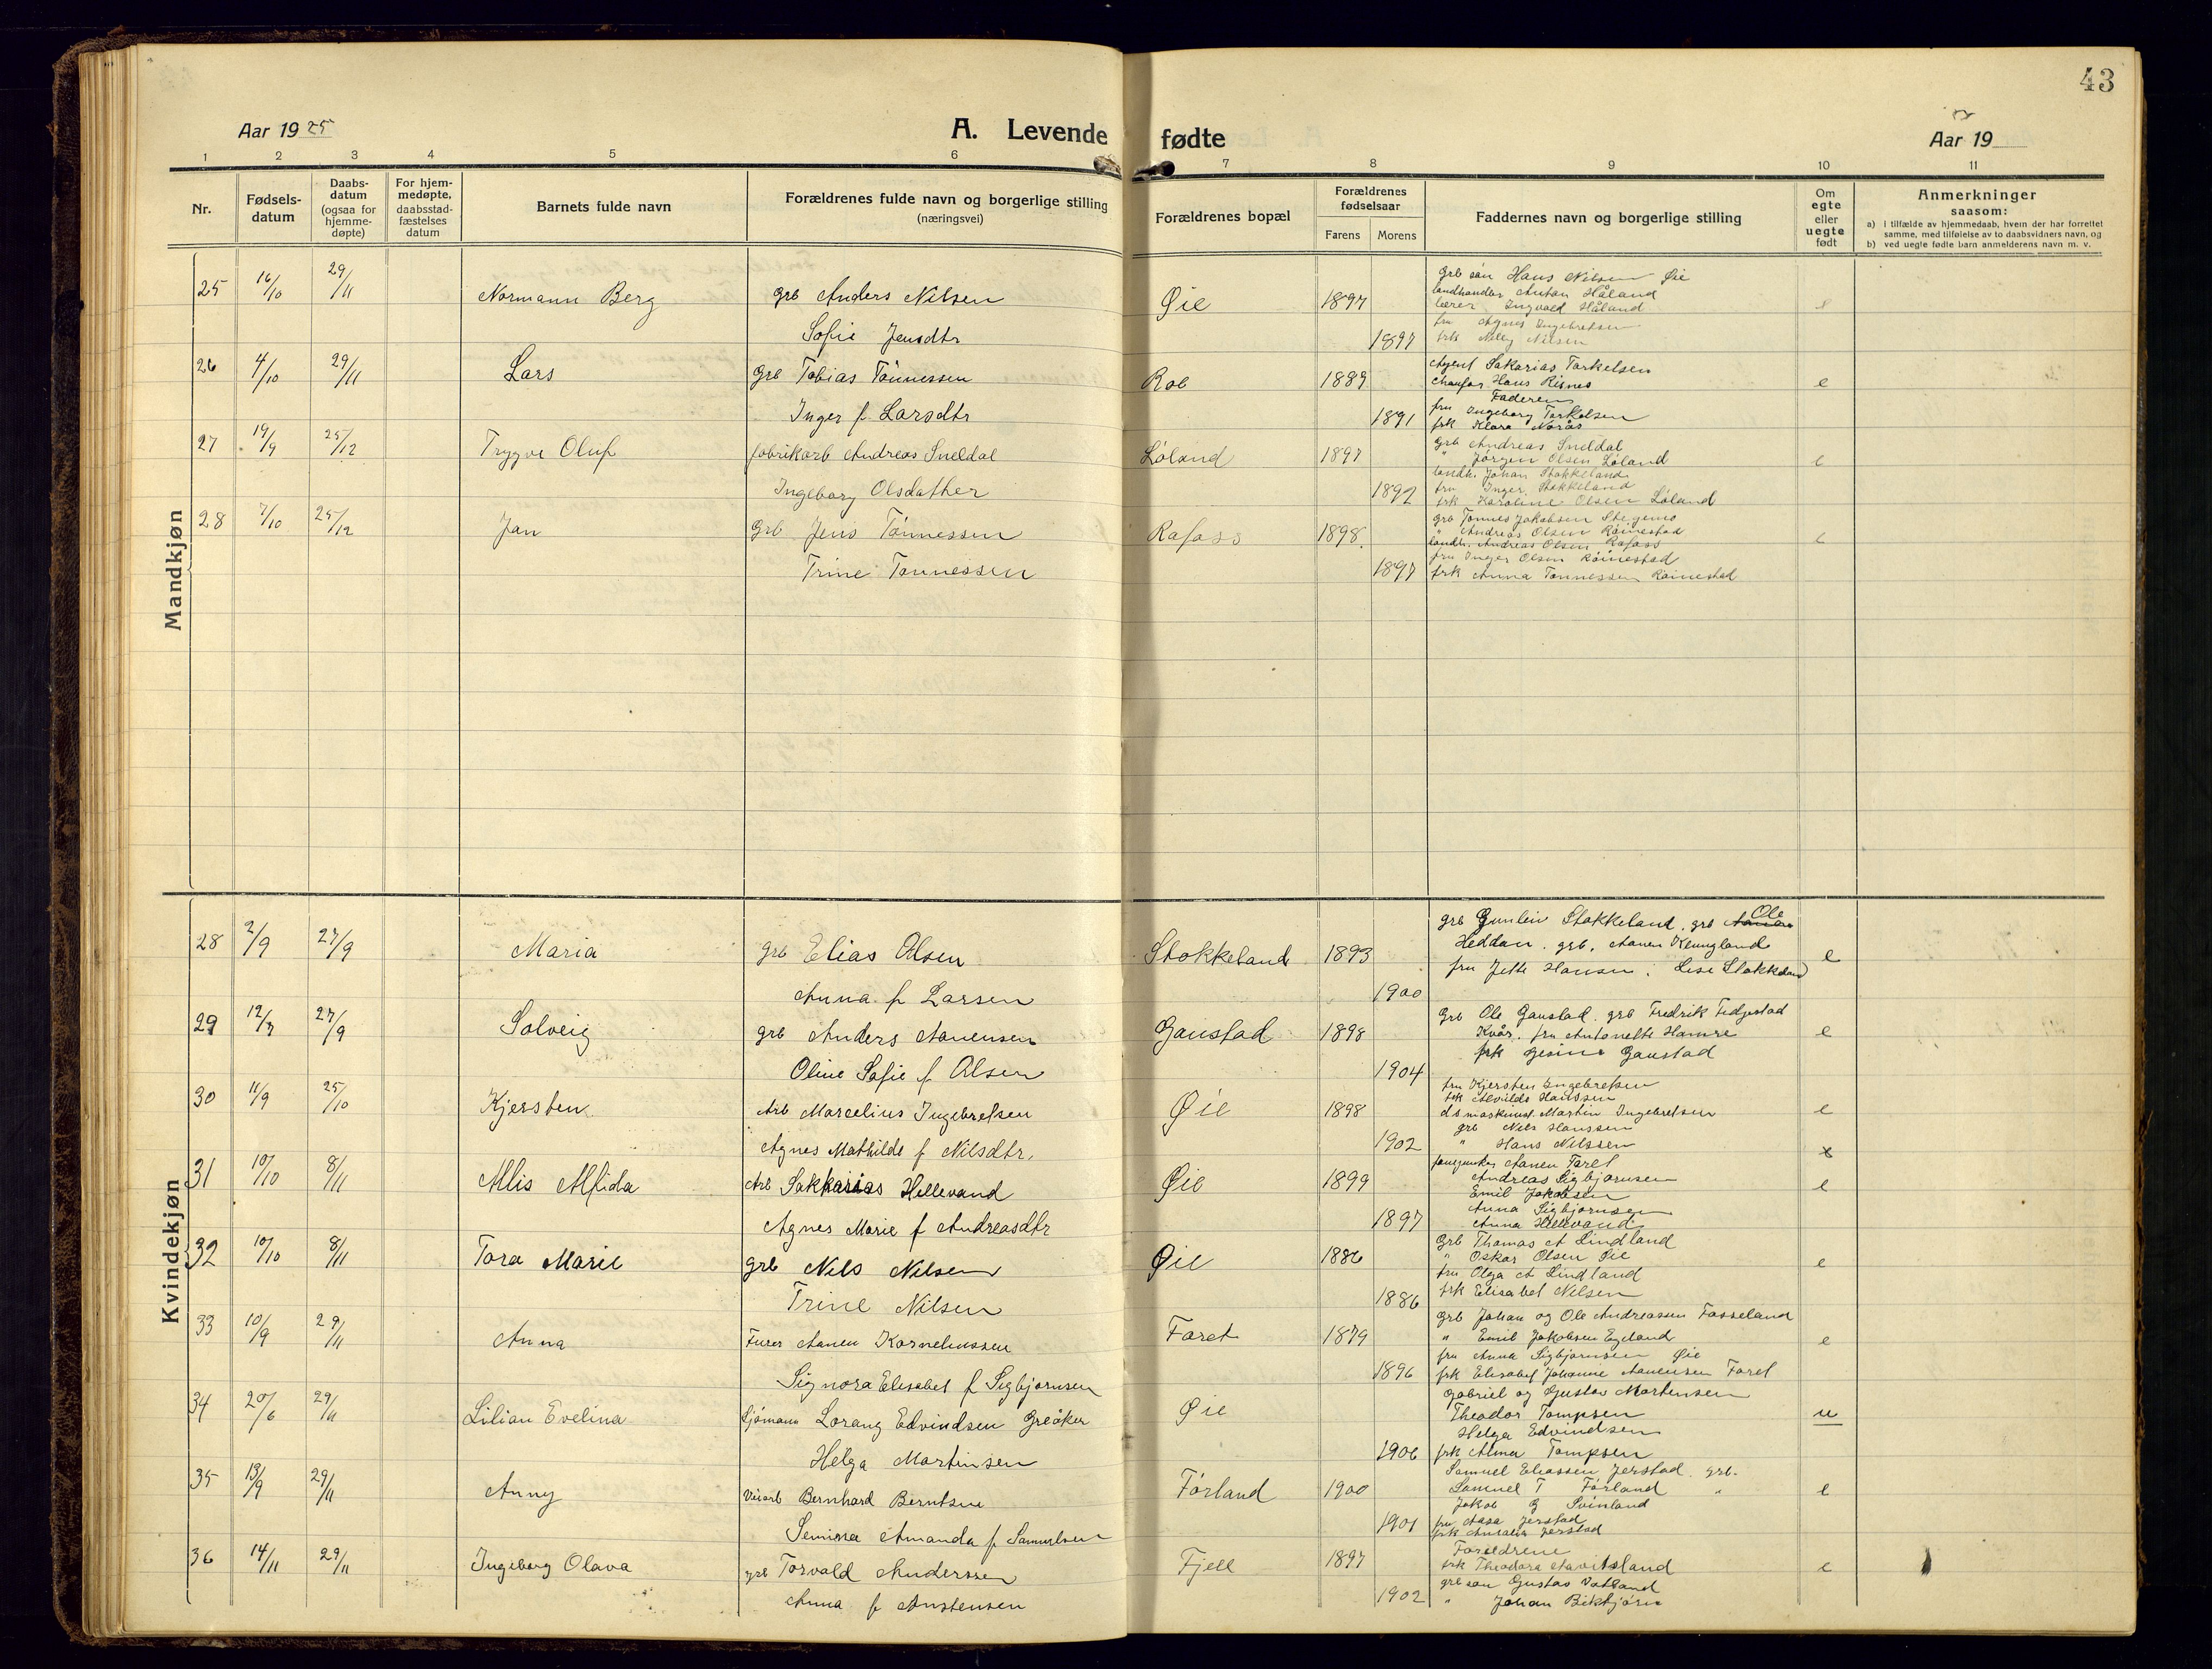 43
Aar 1925
A. Levende fødte
Aar 19
1 2 3 4 5 6 7 8 9 10 11
Nr.
Fødsels-
datum
Daabs-
datum
(ogsaa for
hjemme-
døpte)
For hjem-
medøpte,
daabsstad-
fæstelses
datum
Barnets fulde navn
Forældrenes fulde navn og borgerlige stilling
(næringsvei)
Forældrenes bopæl
Forældrenes
fødselsaar
Farens Morens
Faddernes navn og borgerlige stilling
Om
egte
eller
uegte
født
Anmerkninger
saasom:
a) i tilfælde av hjemmedaab, hvem der har forrettet
samme, med tilføielse av to daabsvidners navn, og
b) ved uegte fødte barn anmelderens navn m. v.
Mandkjøn
25 16/10 29/11 Normann Berg grb Anders Nilsen Øie 1897 e
Sofie Jensdtr 1897
grb søn Hans Nilsen Øie
landhandler Anton Håland
lærer Ingvald Håland
fru Agnes Ingebretsen
frk Nelly Nilsen
26 4/10 29/11 Lars grb Tobias Tönnessen Rob 1889 e
Inger f. Larsdtr 1891
Agent Sakarias Torkelsen
Chaufør Hans Risnes
Faderen
fru Ingeborg Torkelsen
frk Klara Norås
27 19/9 25/12 Trygve Oluf fabrikarb Andreas Sneldal Löland 1897 e
Ingeborg Olsdather 1892
grb Andreas Sneldal
" Jörgen Olsen Löland
landh. Johan Stokkeland
fru Inger Stokkeland
frk Karoline Olsen Löland
28 7/10 25/12 Jan grb Jens Tönnessen Rafoss 1898 e
Trine Tönnessen 1897
grb Tönnes Jakobsen Stegemo
" Andreas Olsen Röinestad
landh. Andreas Olsen Rafoss
fru Inger Olsen Röinestad
frk Anna Tönnessen Röinestad
Kvindekjøn
28 2/9 27/9 Maria grb Elias Olsen Stokkeland 1893 e
Anna f Larsen 1900
grb Gunlein Stokkeland, grb Ole
Heddan, grb. Aanen Klungland
fru Jette Hansen, Lise Stokkeland
29 12/7 27/9 Solveig grb Anders Aanensen Gaustad 1898 e
Oline Sofie f Olsen 1904
grb Ole Gaustad, grb Fredrik Fedgestad
Kvås, fru Antonette Hamre
frk Gesine Gaustad
30 11/9 25/10 Kjersten Arb Marcelius Ingebretsen Øie 1898 e
Agnes Mathilde f Nilsdtr. 1902 x
fru Kjersten Ingebretsen
frk Alvilde Hanssen
ds maskinist Martin Ingebretsen
grb Nils Hanssen
" Hans Nilssen
31 10/10 8/11 Alis Alfida Arb Sakkarias Hellevand Øie 1899 e
Agnes Marie f Andreasdtr 1897
Aanen Faret
Andreas Sigbjørnsen
Emil Jakobsen
Anna Sigbjørnsen
Anna Hellevand
32 10/10 8/11 Tora Marie grb Nils Nilsen Øie 1886 e
Trine Nilsen 1886
grb Thomas A Lindland
" Oskar Olsen Øie
fru Olga A Lindland
frk Elisabet Nilsen
33 10/9 29/11 Anna Furer Aanen Korneliussen Faret 1879 e
Signora Elisabet f Sigbjørnsen 1896
grb Johan og Ole Andreassen Fosseland
" Emil Jakobsen Egeland
fru Anna Sigbjørnsen Øie
frk Elisabet Johanne Aanensen Faret
34 20/6 29/11 Lilian Evelina Sjömann Lorang Edvindsen Greåker Øie u
Helga Martinsen 1906
Gabriel og Gustav Mortensen
Theodor Tompsen
Helga Edvindsen
frk Alma Tompsen
35 13/9 29/11 Anny Veiarb Bernhard Berntsen Förland 1900 e
Semine Amanda f Samuelsen 1901
Samuel Eliassen Jerstad, grb.
Samuel T Förland "
Jakob G Svinland
fru Aasa Jerstad
frk Amalia Jerstad
36 14/11 29/11 Ingeborg Olava grb Torvald Anderssen Fjell 1897 e
Anna f Anstensen 1902
Forældrene
frk Theodora Aavitsland
grb søn Gustav Vatland
" Johan Birkbjørn